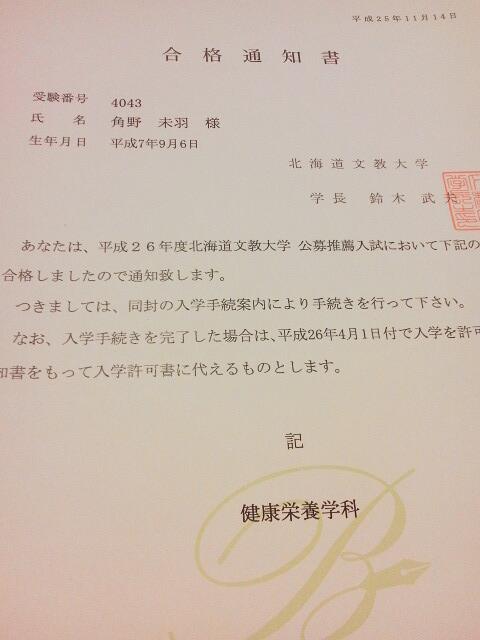 平成25年11月14日
合格通知書
受験番号 4043
氏名 角野 未羽 様
生年月日 平成7年9月6日
北海道文教大学
学長 鈴木 武夫
あなたは、平成26年度北海道文教大学 公募推薦入試において下記の
合格しましたので通知致します。
つきましては、同封の入学手続案内により手続きを行って下さい。
なお、入学手続きを完了した場合は、平成26年4月1日付で入学を許可
知書をもって入学許可書に代えるものとします。
記
健康栄養学科